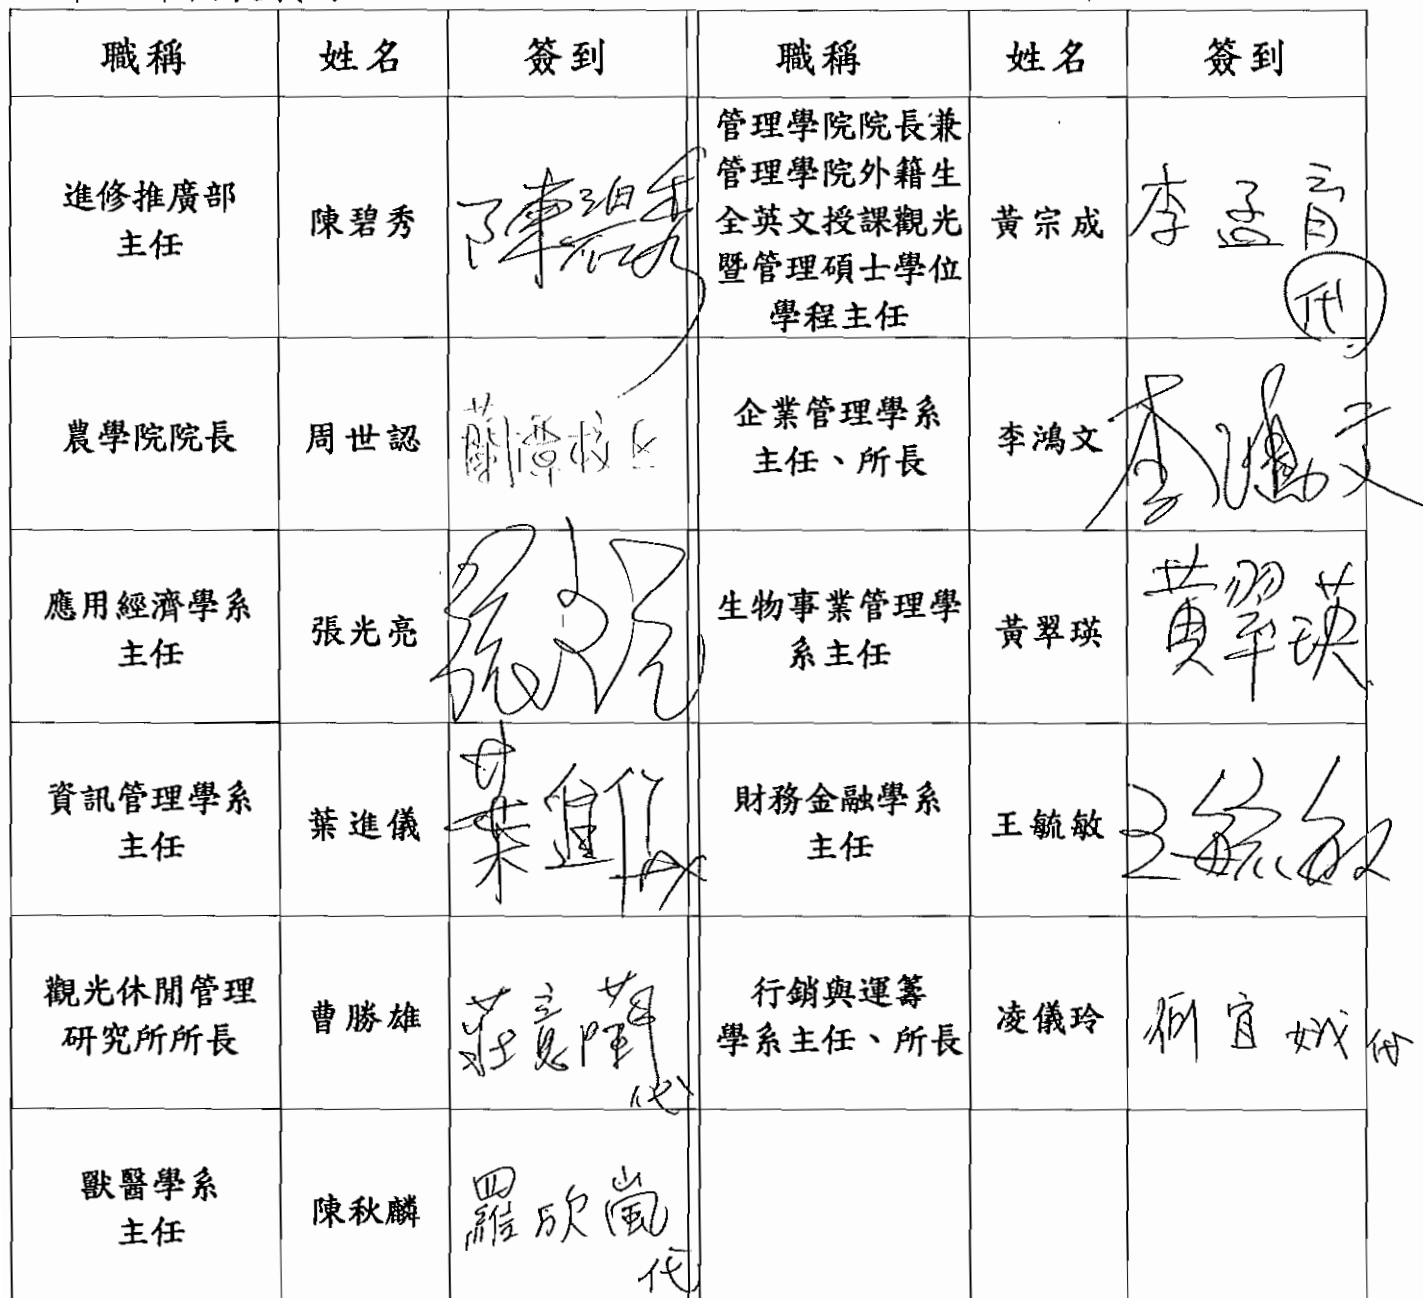 職稱 姓名 簽到 職稱 姓名 簽到
進修推廣部
主任
陳碧秀
陳碧秀
管理學院院長兼
管理學院外籍生
全英文授課觀光
暨管理碩士學位
學程主任
黃宗成
李孟育
代
農學院院長
周世認
蘭潭校區
企業管理學系
主任、所長
李鴻文
李鴻文
應用經濟學系
主任
張光亮
生物事業管理學
系主任
黃翠瑛
黃翠瑛
資訊管理學系
主任
葉進儀
葉進儀
財務金融學系
主任
王毓敏
王毓敏
觀光休閒管理
研究所所長
曹勝雄
莊意
代
行銷與運籌
學系主任、所長
凌儀玲
宜娥 代
獸醫學系
主任
陳秋麟
羅欣嵐
代